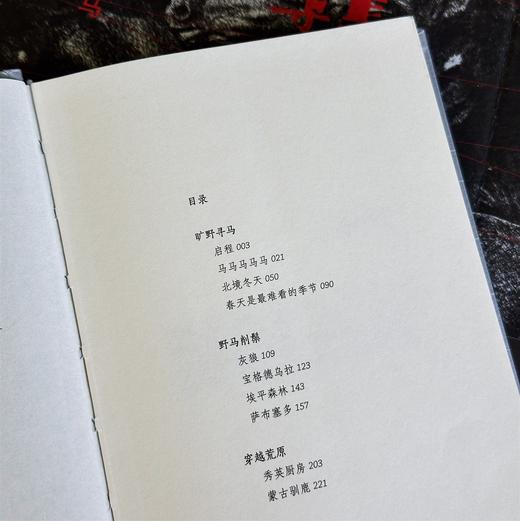 目录
旷野寻马
启程 003
马马马马马 021
北境冬天 050
春天是最难看的季节 090
野马削鬃
灰狼 109
宝格德乌拉 123
埃平森林 143
萨布塞多 157
穿越荒原
秀英厨房 203
蒙古驯鹿 221